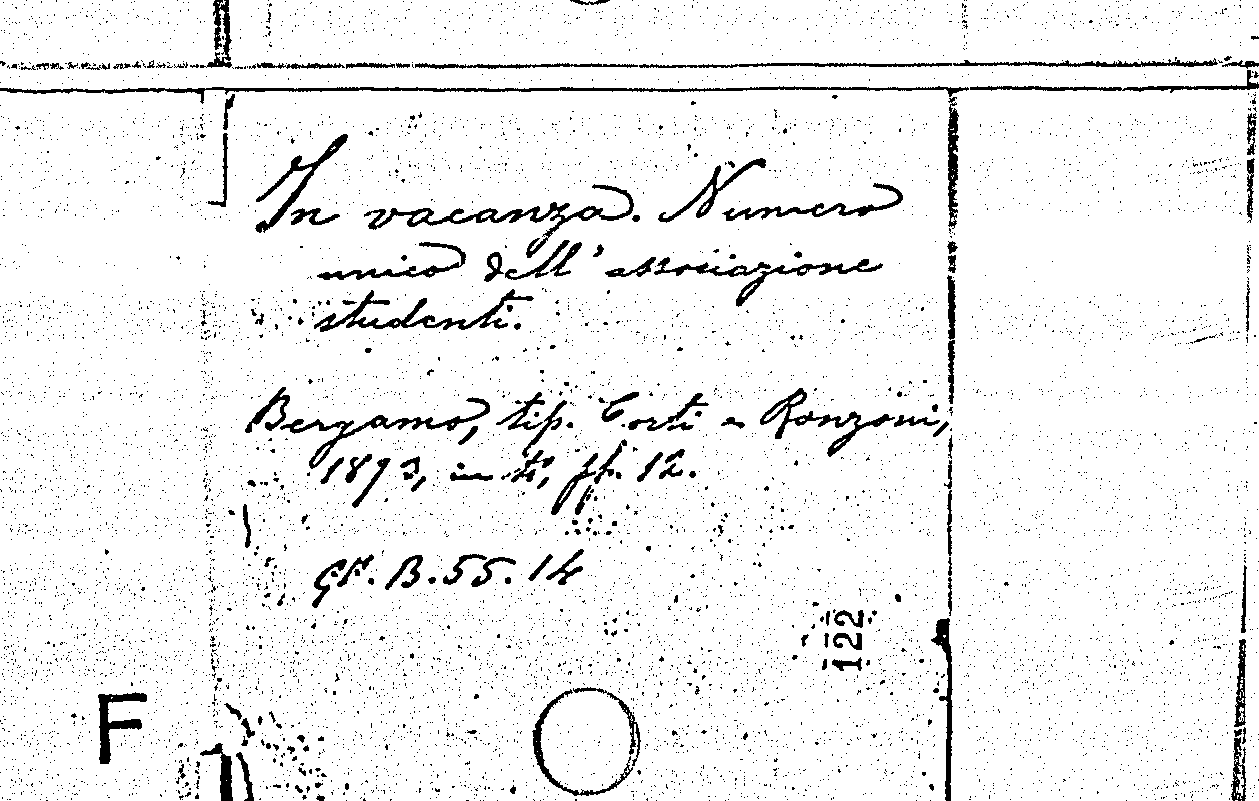 In vacanza. Numero
unico dell' associazione
studenti.
Bergamo, tip. Corti e Ronzoni,
1893, in 4°, pp. 12.
GF. B. 55. 14
122
F